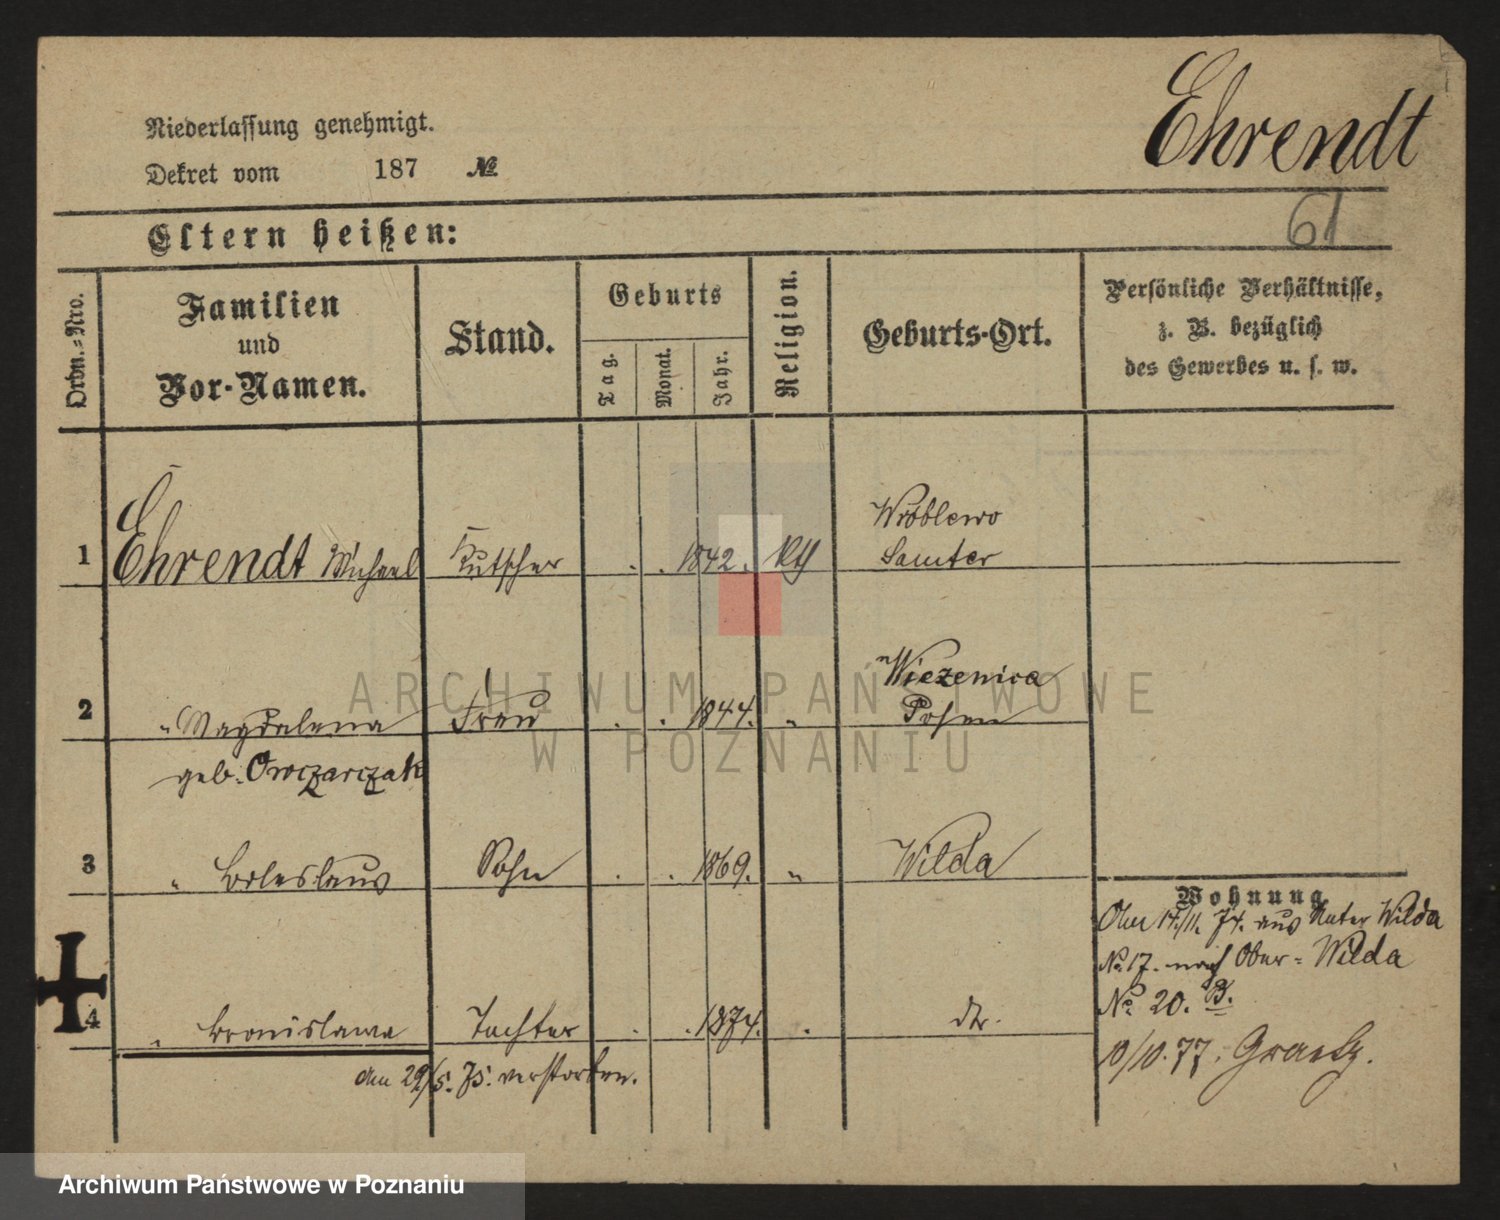 Ehrendt
Niederlassung genehmigt.
Dekret vom 187 №
61
Eltern heißen:
Ordn.-Nro.
Familien
und
Vor-Namen.
Stand.
Geburts
Tag.
Monat.
Jahr.
Religion.
Geburts-Ort.
Persönliche Verhältnisse,
z. B. bezüglich
des Gewerbes u. s. w.
Wróblewo
1 Ehrendt Michael Kutscher . . 1842. Kth Samter
Wiezenica
2 " Magdalena Frau . . 1844. " Posen
geb. Owczarczak
3 " Boleslaus Sohn . . 1869. " Wilda
Wohnung
14/11. 74. aus Unter Wilda
No 17. nach Ober-Wilda
No 20. B.
4 " Bronislawa Tochter . . 1874. . dto.
10/10. 77. Graetz.
den 29/5. 75. verstorben.
ARCHIWUM PAŃSTWOWE
W POZNANIU
Archiwum Państwowe w Poznaniu